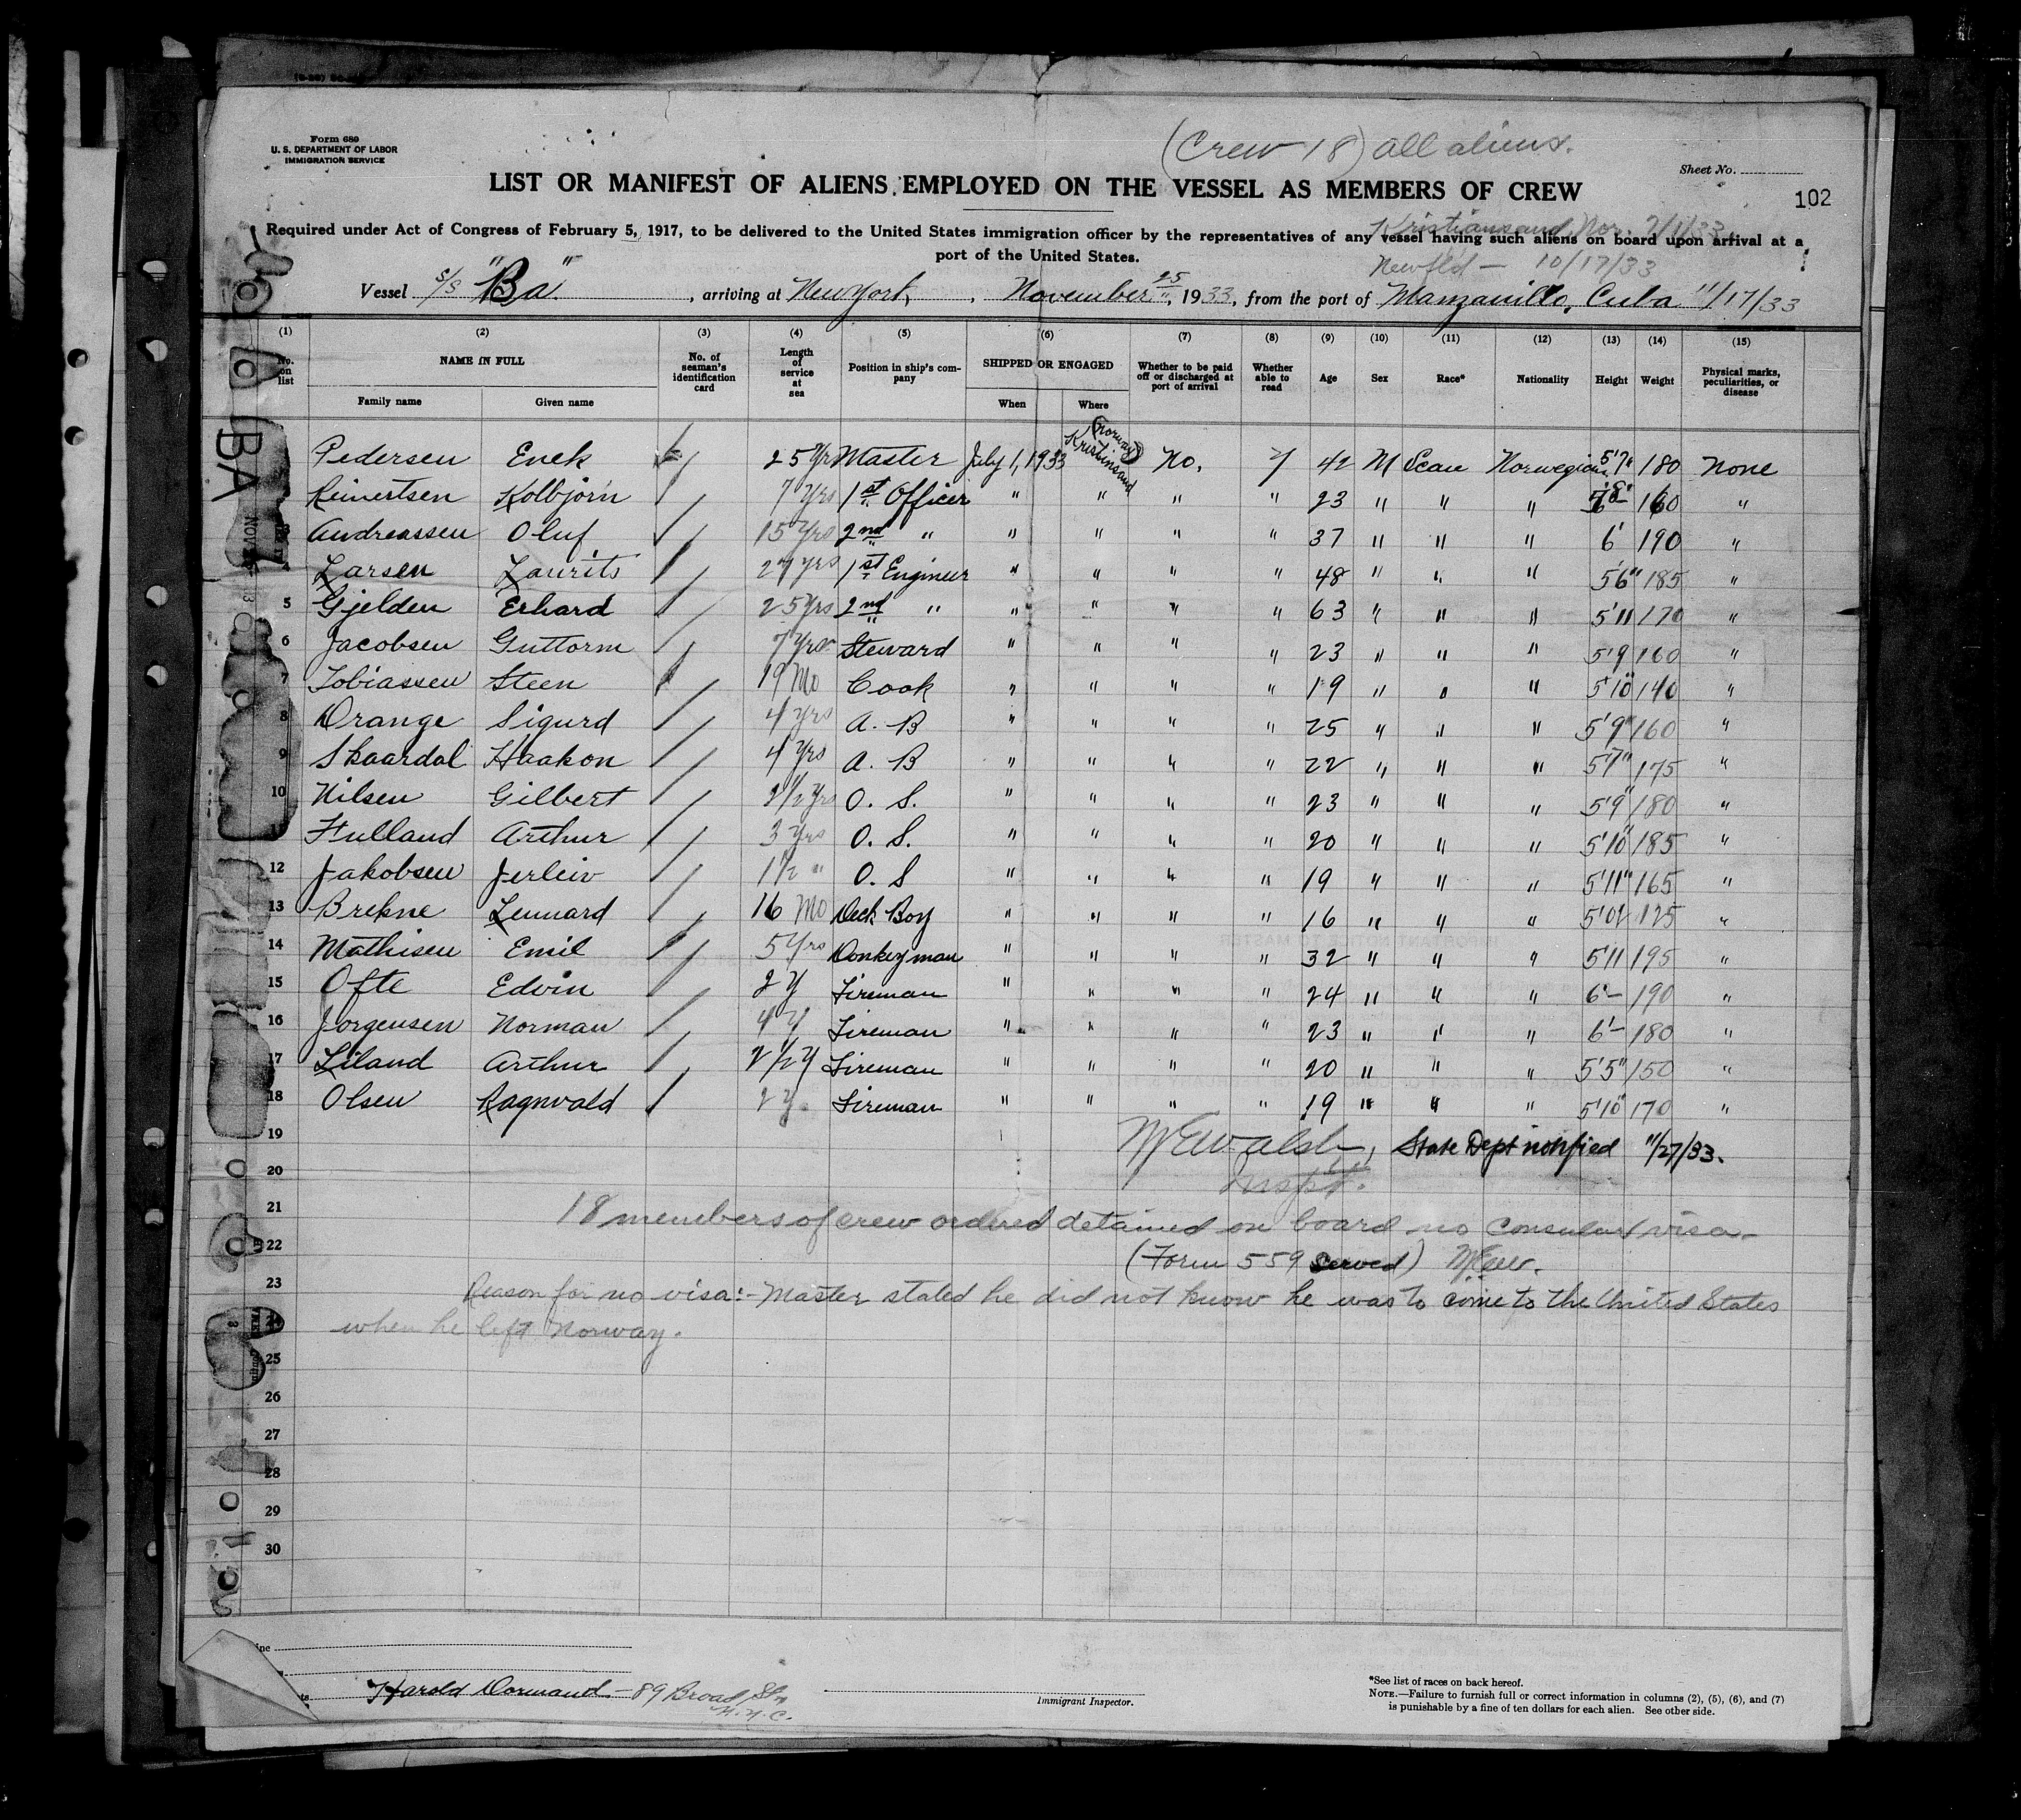 (Crew 18) all aliens.
Form 689
U. S. DEPARTMENT OF LABOR
IMMIGRATION SERVICE
Sheet No.
LIST OR MANIFEST OF ALIENS EMPLOYED ON THE VESSEL AS MEMBERS OF CREW
102
Kristiansand, Nor. 7/1/33
Required under Act of Congress of February 5, 1917, to be delivered to the United States immigration officer by the representatives of any vessel having such aliens on board upon arrival at a
port of the United States.
Newfld — 10/17/33
Vessel S/S "Ba", arriving at New York, November 25, 1933, from the port of Manzanillo, Cuba 11/17/33
(1) (2) (3) (4) (5) (6) (7) (8) (9) (10) (11) (12) (13) (14) (15)
No. on list NAME IN FULL No. of seaman's identification card Length of service at sea Position in ship's company SHIPPED OR ENGAGED Whether to be paid off or discharged at port of arrival Whether able to read Age Sex Race* Nationality Height Weight Physical marks, peculiarities, or disease
Family name Given name When Where
Pedersen Enek 25 Yrs Master July 1, 1933 Kristinsand (Norway) No. Y 42 M Scan Norwegian 5'7" 180 None
Reinertsen Kolbjorn 7 Yrs 1st Officer " " " " 23 " " " 160 "
3 Andreassen Oluf 15 Yrs 2nd " " " " " 37 " " " 6' 190 "
4 Larsen Laurits 27 yrs 1st Engineer " " " " 48 " " " 5'6" 185 "
5 Gjelden Erhard 25 yrs 2nd " " " " " 63 " " " 5'11 170 "
6 Jacobsen Guttorm 7 yrs Steward " " " " 23 " " " 5'9 160 "
7 Tobiassen Steen 19 Mo Cook " " " " 19 " " " 5'10" 140 "
8 Drange Sigurd 4 yrs A. B " " " " 25 " " " 5'9" 160 "
9 Skaardal Haakon 4 yrs A. B " " " " 22 " " " 5'7" 175 "
10 Nilsen Gilbert 2 1/2 Yrs O. S. " " " " 23 " " " 5'9" 180 "
Hulland Arthur 3 yrs O. S. " " " " 20 " " " 5'10" 185 "
12 Jakobsen Jerleiv 1 1/2 " O. S " " " " 19 " " " 5'11" 165 "
13 Brekne Lennard 16 Mo Deck Boy " " " " 16 " " " 5'02 125 "
14 Mathisen Emil 5 Yrs Donkeyman " " " " 32 " " " 5'11 195 "
15 Ofte Edvin 2 Y Fireman " " " " 24 " " " 6'— 190 "
16 Jorgensen Norman 4 Y Fireman " " " " 23 " " " 6'— 180 "
17 Liland Arthur 2 1/2 Y Fireman " " " " 20 " " " 5'5" 150 "
18 Olsen Ragnvald 2 Y. Fireman " " " " 19 " " " 5'10" 170 "
19 W E Walsh, State Dept notified 11/27/33.
20 Inspt.
21 18 members of crew ordered detained on board no consular visa—
22 (Form 559 served) WEW.
23 Reason for no visa:- Master stated he did not know he was to come to the United States
24 when he left Norway.
25
26
27
28
29
30
BA
Harold Dormand - 89 Broad St,
N.Y.C.
Immigrant Inspector.
*See list of races on back hereof.
NOTE.—Failure to furnish full or correct information in columns (2), (5), (6), and (7)
is punishable by a fine of ten dollars for each alien. See other side.